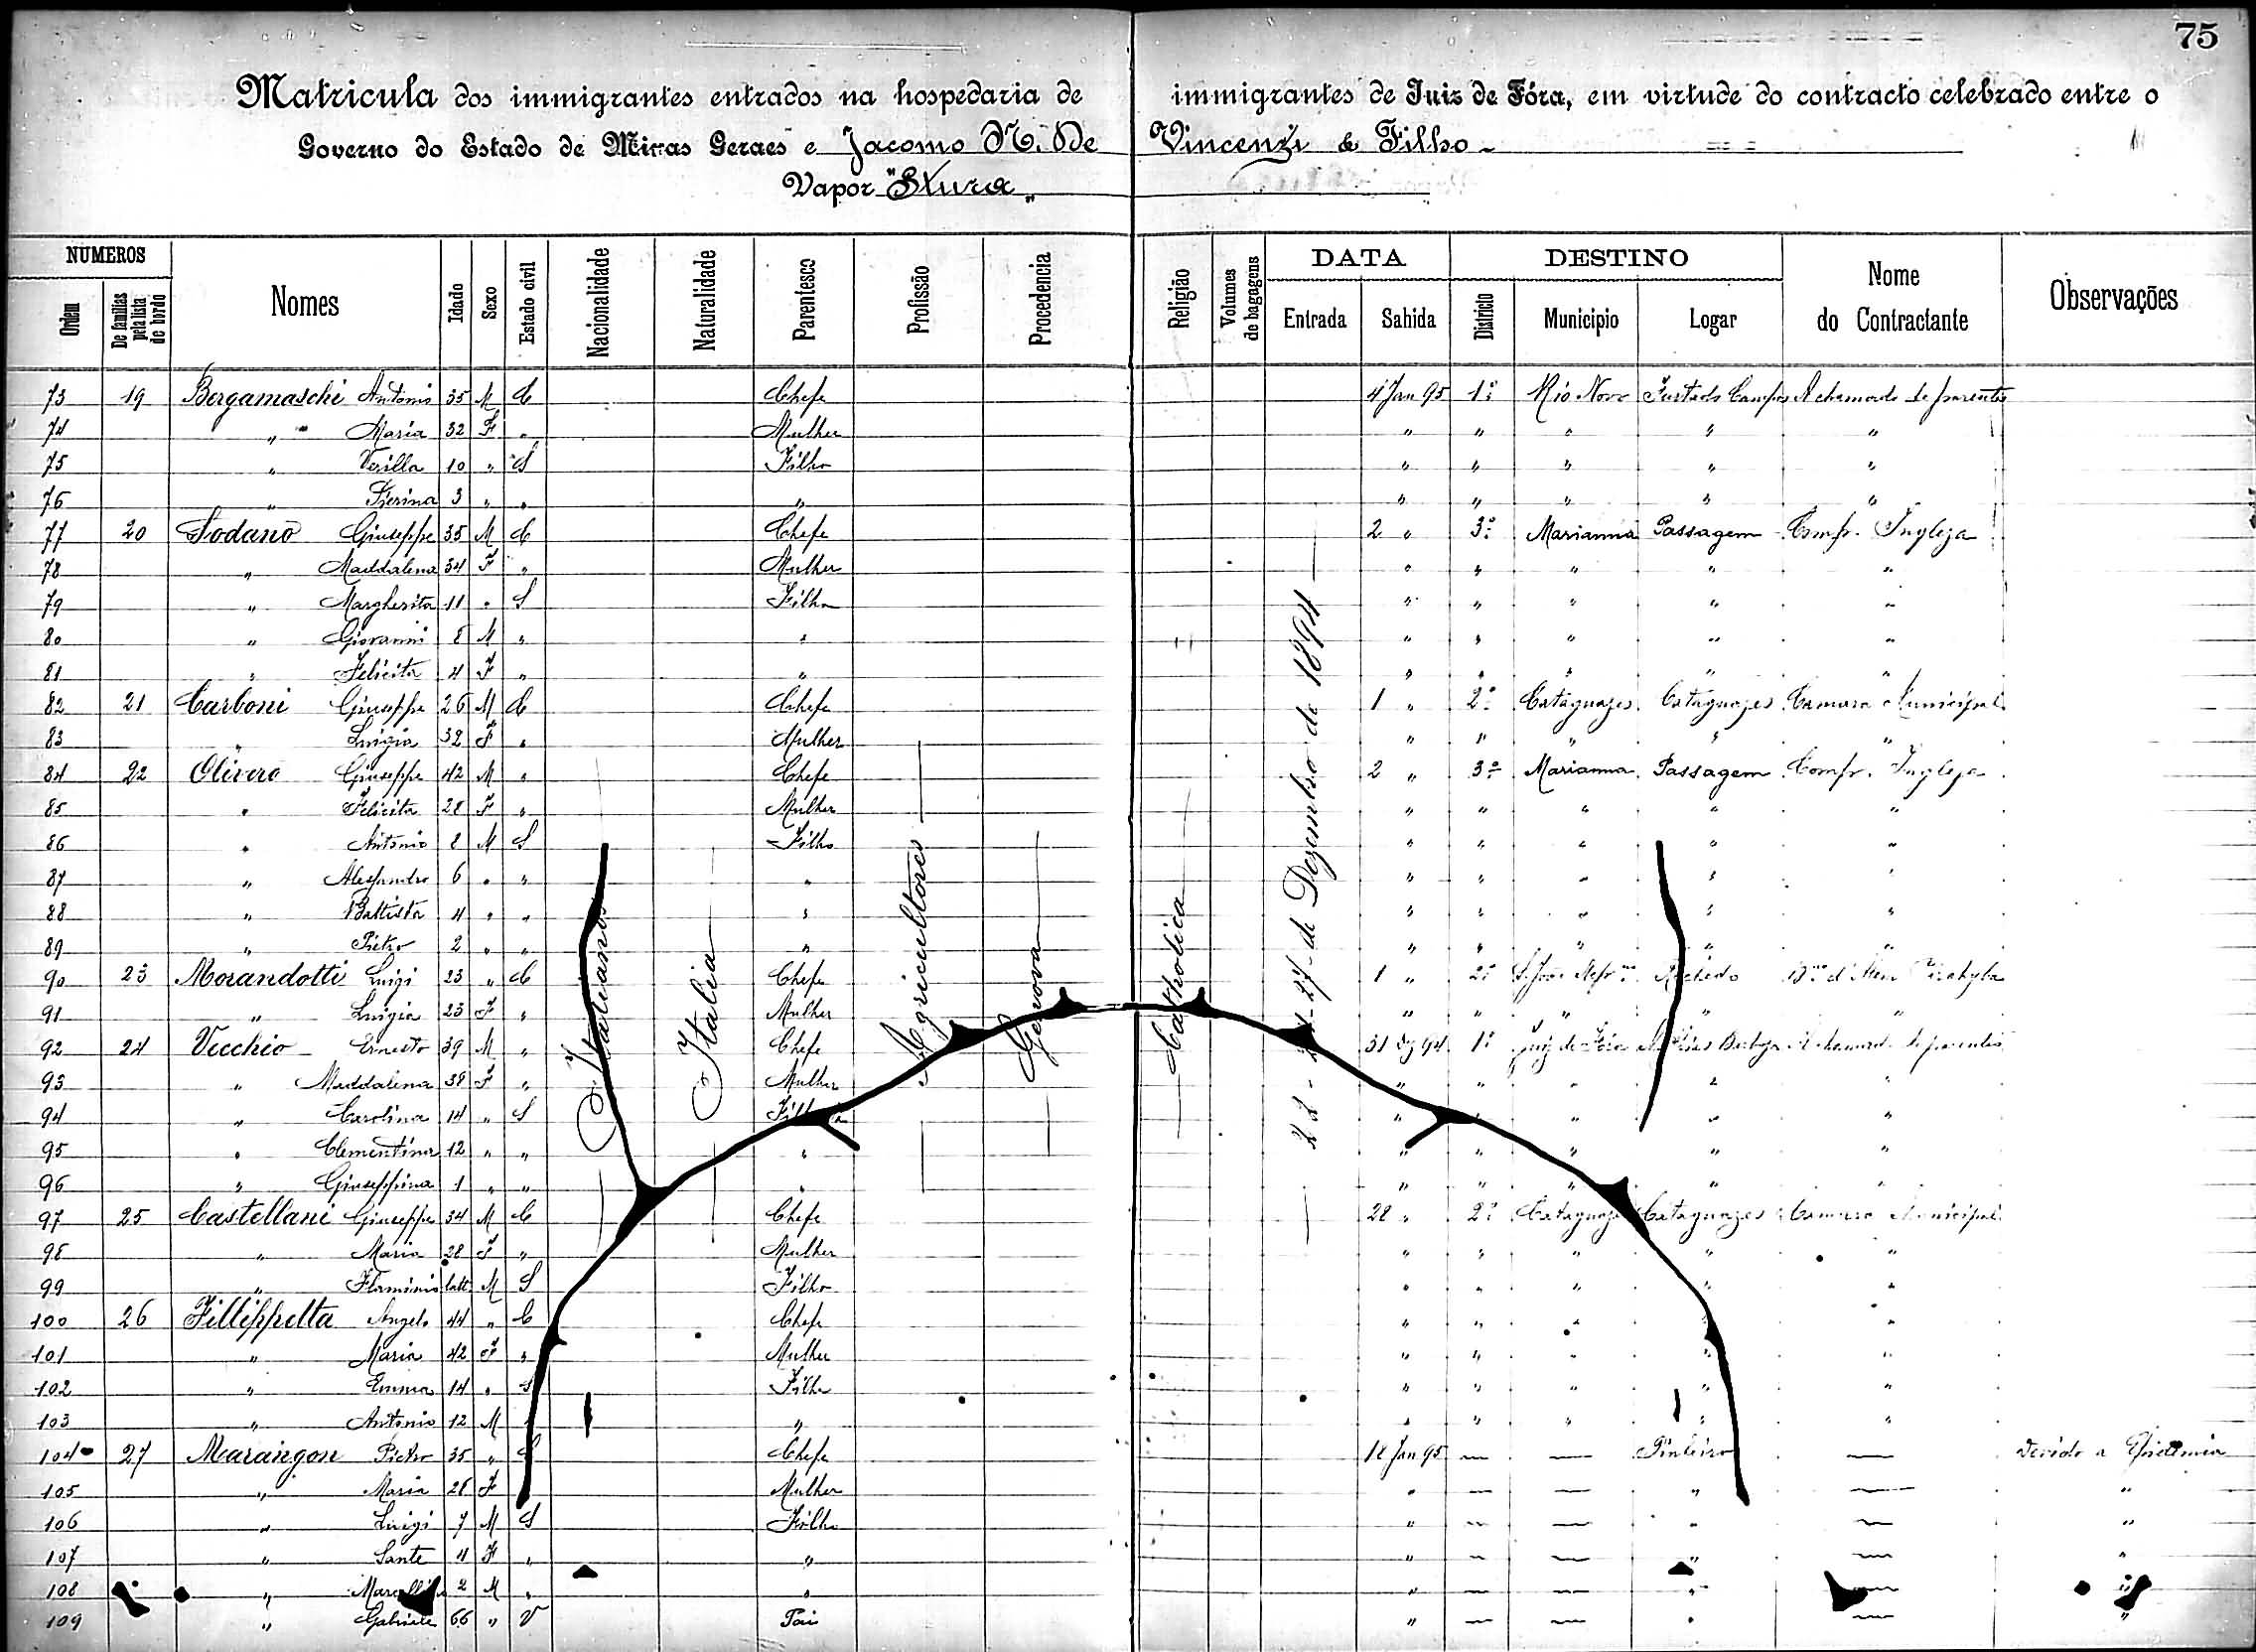 75
Matricula dos immigrantes entrados na hospedaria de immigrantes de Juiz de Fóra, em virtude do contracto celebrado entre o
Governo do Estado de Minas Geraes e Jacomo N. De Vincenzi & Filho
Vapor "Stura"
NUMEROS Nomes Idade Sexo Estado civil Nacionalidade Naturalidade Parentesco Profissão Procedencia Religião Volumes de bagagens DATA DESTINO Nome do Contractante Observações
Ordem De familias pela lista de bordo Entrada Sahida Districto Municipio Logar
Italianos Italia Agricultores Genova Catholica 27 de Dezembro de 1894
73 19 Bergamaschi Antonio 35 M C Chefe 4 Jan 95 1º Rio Novo Furtado Campos A chamado de parentes
74 " " Maria 32 F " Mulher " " " " "
75 " 10 " S Filho " " " " "
76 " Pierina 3 " " " " " " " "
77 20 Sodano Giuseppe 35 M C Chefe 2 " 3º Marianna Passagem Comp. Ingleza
78 " Maddalena 34 F " Mulher " " " " "
79 " Margherita 11 " S Filha " " " " "
80 " Giovanni 8 M " " " " " " "
81 " Felicita 4 F " " " " " " "
82 21 Carboni Giuseppe 26 M C Chefe 1 " 2º Cataguazes Cataguazes Camara Municipal
83 " Luigia 32 F " Mulher " " " " "
84 22 Olivero Giuseppe 42 M " Chefe 2 " 3º Marianna Passagem Comp. Ingleza
85 " Felicita 28 F " Mulher " " " " "
86 " Antonio 8 M S Filho " " " " "
87 " Alessandro 6 " " " " " " " "
88 " Battista 4 " " " " " " " "
89 " Pietro 2 " " " " " " " "
90 23 Morandotti Luigi 23 " C Chefe 1 " 2º S. João Nep.
91 " Luigia 23 F " Mulher " " " " "
92 24 Vecchio Ernesto 39 M " Chefe 31 Dz 94 1º Juiz de Fóra Barboza A chamado de parentes
93 " Maddalena 38 F " Mulher " " " " "
94 " Carolina 14 " S Filha " " " " "
95 " Clementina 12 " " " " " " " "
96 " Giuseppina 1 " " " " " " " "
97 25 Castellani Giuseppe 34 M C Chefe 28 " 2º Cataguazes Cataguazes Camara Municipal
98 " Maria 28 F " Mulher " " " " "
99 " Flaminio latt. M S Filho " " " " "
100 26 Fillippetta Angelo 44 " C Chefe " " " " "
101 " Maria 42 F " Mulher " " " " "
102 " Emma 14 " S Filha " " " " "
103 " Antonio 12 M " " " " " " "
104 27 Marangon Pietro 35 " Chefe 18 Jan 95 — — Pinheiro — Devido a Epidemia
105 " Maria 28 F Mulher " — — " — "
106 " Luigi 7 M S Filho " — — " — "
107 " Sante 4 F " " " — — " — "
108 " 2 M " " " — — " — "
109 " Gabriele 66 " V Pai " — — " — "